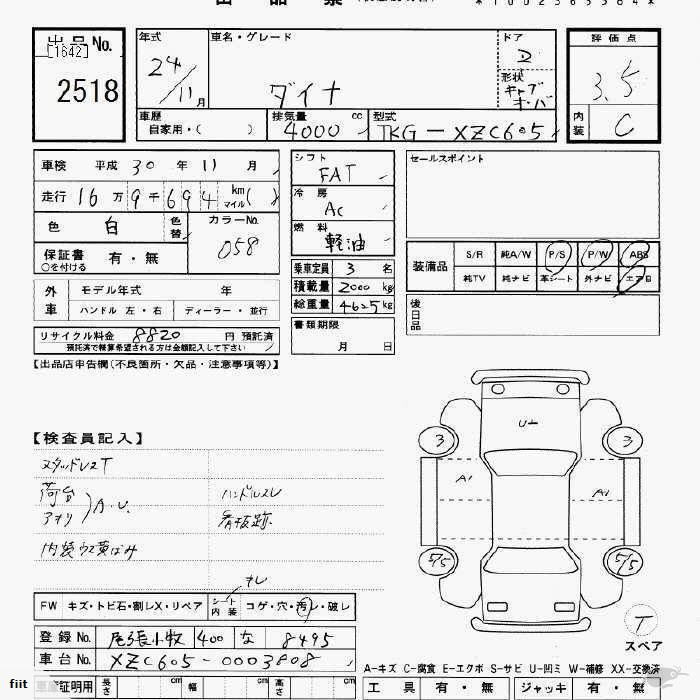 出品No.
[1642]
2518
年式
24/11月
車名・グレード
ダイナ
ドア
2
形状
キャブオーバ
評価点
3.5
内装
C
車歴
自家用・( )
排気量 cc
4000
型式
TKG-XZC605
車検 平成 30 年 11 月
走行 16万9千694 km マイル( )
色 白 色替
カラーNo.
058
保証書 有・無
○を付ける
外車
モデル年式 年
ハンドル 左・右 ディーラー・並行
リサイクル料金 8820 円 預託済
預託済で精算希望される方は金額記入して下さい
シフト
FAT
冷房
AC
燃料
軽油
乗車定員 3 名
積載量 2000 kg
総重量 4625 kg
書類期限
月 日
セールスポイント
装備品
S/R 純A/W P/S P/W ABS
純TV 純ナビ 革シート 外ナビ エアB
後日品
【出品店申告欄(不良箇所・欠品・注意事項等)】
【検査員記入】
スタッドレスT
荷台
アオリ
A.U.
ハンドルスレ
看板跡
内装ウス黄ばみ
キレ
FW キズ・トビ石・割レX・リペア シート内装 コゲ・穴・汚レ・破レ
登録No. 尾張小牧 400 な 8495
車台No. XZC605-0003808
証明用 長さ cm 幅 cm 高さ cm
U-
3
3
A1
A1
5/5
5/5
T
スペア
A-キズ C-腐食 E-エクボ S-サビ U-凹ミ W-補修 XX-交換済
工具 有・無 ジャッキ 有・無
fiit